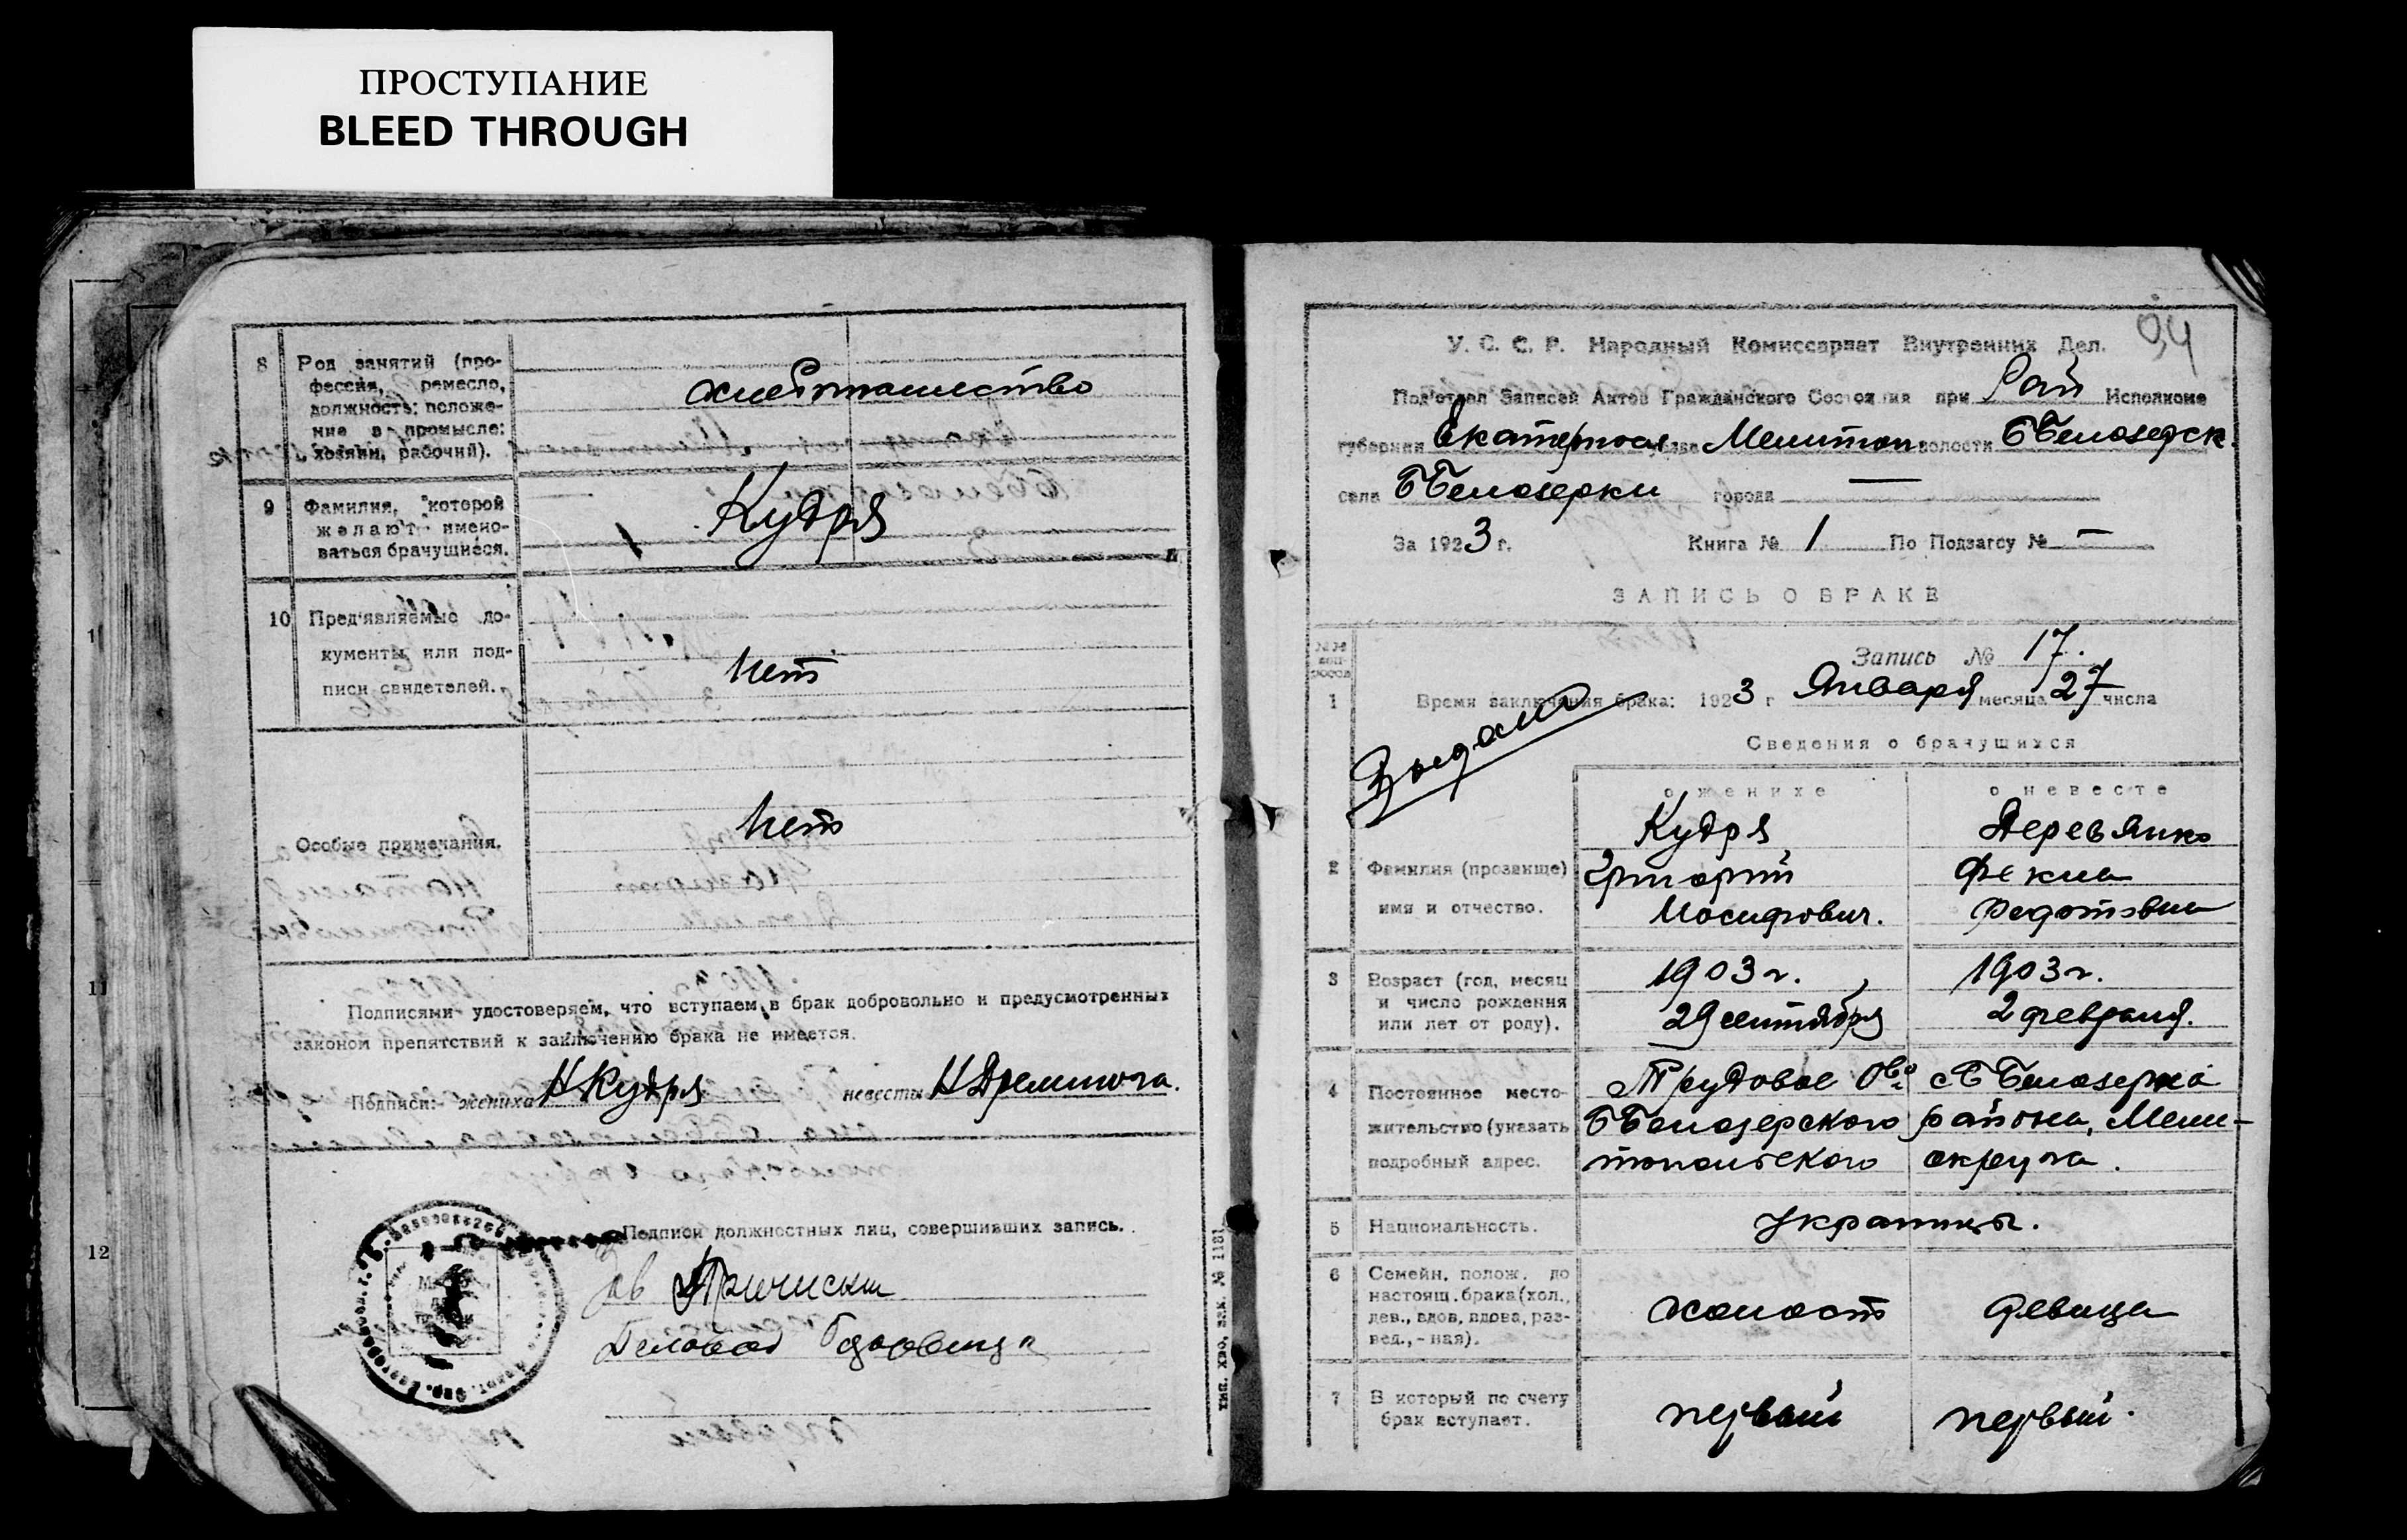 ПРОСТУПАНИЕ
BLEED THROUGH
8 Род занятий (про-
фессия, ремесло,
должность; положе-
ние в промысле:
хозяин, рабочий).
хлебопашество
9 Фамилия, которой
желают имено-
ваться брачущиеся.
Кудря
10 Пред'являемые до-
кументы или под-
писи свидетелей.
Нет
Особые примечания.
Нет
Подписями удостоверяем, что вступаем в брак добровольно и предусмотренных
законом препятствий к заключению брака не имеется.
Подписи: жениха Н Кудря невесты Н Дремлюга.
Подписи должностных лиц, совершивших запись.
Зав
Деловод
1
11
12
94
У. С. С. Р. Народный Комиссариат Внутренних Дел.
Под'отдел Записей Актов Гражданского Состояния при Рай Исполкоме
губернии Екатериносл. уезде Мелитоп волости ББелозерск.
села ББелозерки города —
За 1923 г. Книга № 1 По Подзагсу № —
ЗАПИСЬ О БРАКЕ
Запись № 17.
1 Время заключения брака: 1923 г Января месяца 27 числа
Выдано
Сведения о брачущихся
о женихе о невесте
2 Фамилия (прозвище)
имя и отчество.
Кудря
Григорий
Иосифович.
Деревянко
Фекла
Федотовна
3 Возраст (год, месяц
и число рождения
или лет от роду).
1903 г.
29 сентября
1903 г.
2 февраля.
4 Постоянное место-
жительство (указать
подробный адрес.
Трудовое Ово с ББелозерка
ББелозерского района, Мели-
топольского округа.
5 Национальность. Украинцы.
6 Семейн. полож. до
настоящ. брака (хол.,
дев., вдов, вдова, раз-
вед.,-ная).
холост девица
7 В который по счету
брак вступает.
первый первый.